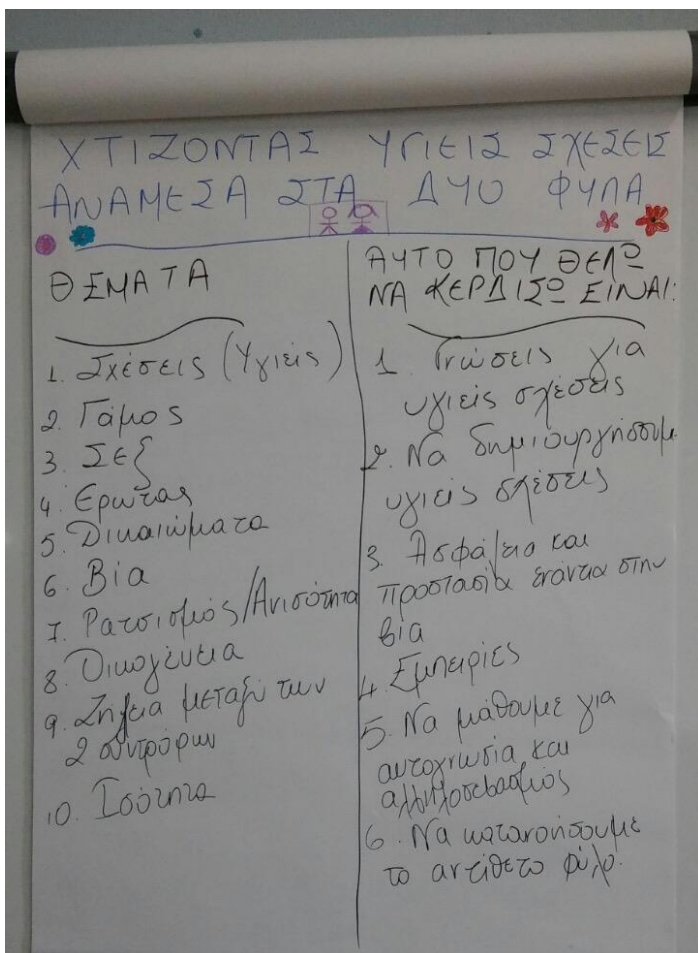 ΧΤΙΖΟΝΤΑΣ ΥΓΙΕΙΣ ΣΧΕΣΕΙΣ
ΑΝΑΜΕΣΑ ΣΤΑ ΔΥΟ ΦΥΛΑ
ΘΕΜΑΤΑ
1. Σχέσεις (Υγιείς)
2. Γάμος
3. Σεξ
4. Ερωτας
5. Δικαιώματα
6. Βία
7. Ρατσισμός/Ανισότητα
8. Οικογένεια
9. Ζήλεια μεταξύ των
2 συντρόφων
10. Ισότητα
ΑΥΤΟ ΠΟΥ ΘΕΛΩ
ΝΑ ΚΕΡΔΙΣΩ ΕΙΝΑΙ:
1 Γνώσεις για
υγιείς σχέσεις
2. Να δημιουργήσουμε
υγιείς σχέσεις
3. Ασφάλεια και
προστασία ενάντια στην
βία
4. Εμπειρίες
5. Να μάθουμε για
αυτογνωσία και
αλληλοσεβασμός
6. Να κατανοήσουμε
το αντίθετο φύλο.